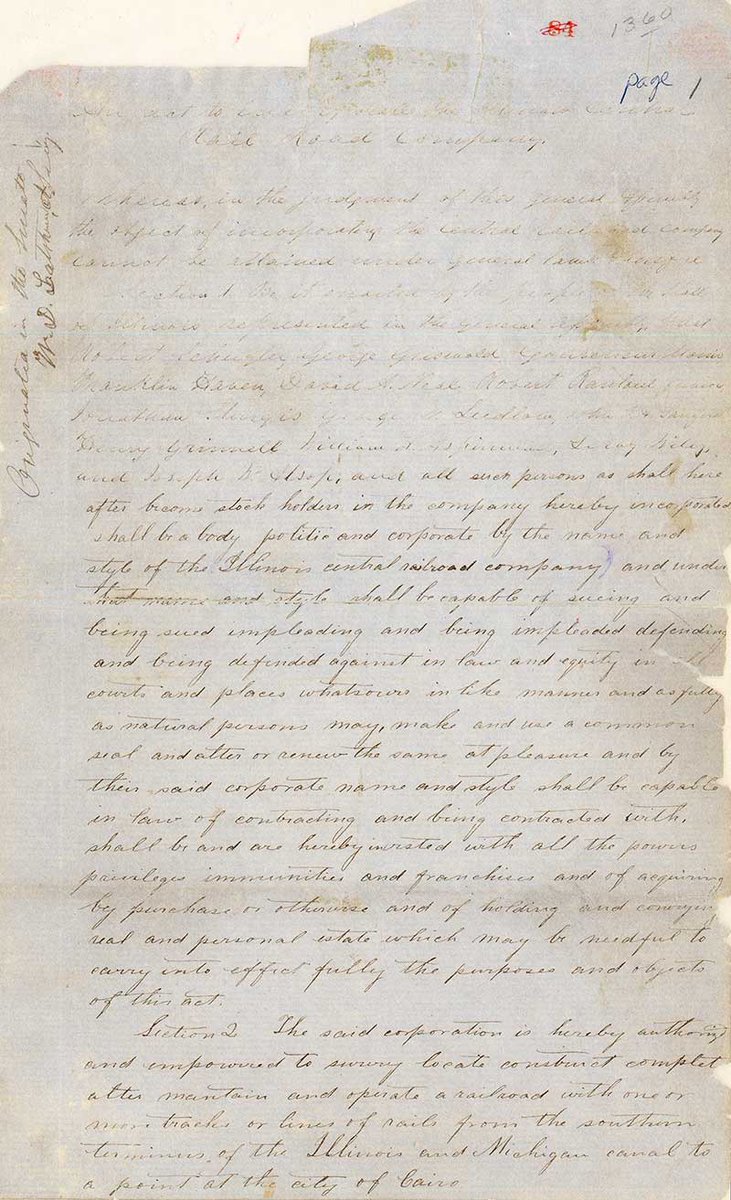 84
1360
page 1
An act to incorporate the Illinois Central
Rail Road Company.
Originated in the Senate
Whereas, in the judgment of this general Assembly
the object of incorporating the central rail road company
cannot be attained under general laws Therefore
Section 1. Be it enacted by the people of the State
of Illinois represented in the general Assembly, that
Robert Schuyler, George Griswold, Gouverneur Morris
Franklin Haven, David A. Neal Robert Rantoul junior
Jonathan Sturgis George W. Ludlow, John F. A. Sanford
Henry Grinnell William H. Aspinwall, Leroy Wiley,
and Joseph W. Alsop, and all such persons as shall here
after become stock holders in the company hereby incorporated
shall be a body politic and corporate by the name and
style of the Illinois central railroad company) and under
that name and style shall be capable of sueing and
being sued impleading and being impleaded defending
and being definded against in law and equity in
courts and places whatsours in like manner and as fully
as natural persons may, make and use a common
seal and alter or renew the same at pleasure and by
their said corporate name and style shall be capable
in law of contracting and being contracted with,
shall be and are hereby invested with all the powers
privileges immunities and franchises and of acquiring
by purchase or otherwise and of holding and conveyin
real and personal estate which may be needful to
carry into effect fully the purposes and objects
of this act.
Section 2 The said corporation is hereby authorized
and empowered to survey locate construct complet
alter mantain and operate a railroad with one or
more tracks or lines of rails from the southern
terminus of the Illinois and Michigan canal to
a point at the city of Cairo